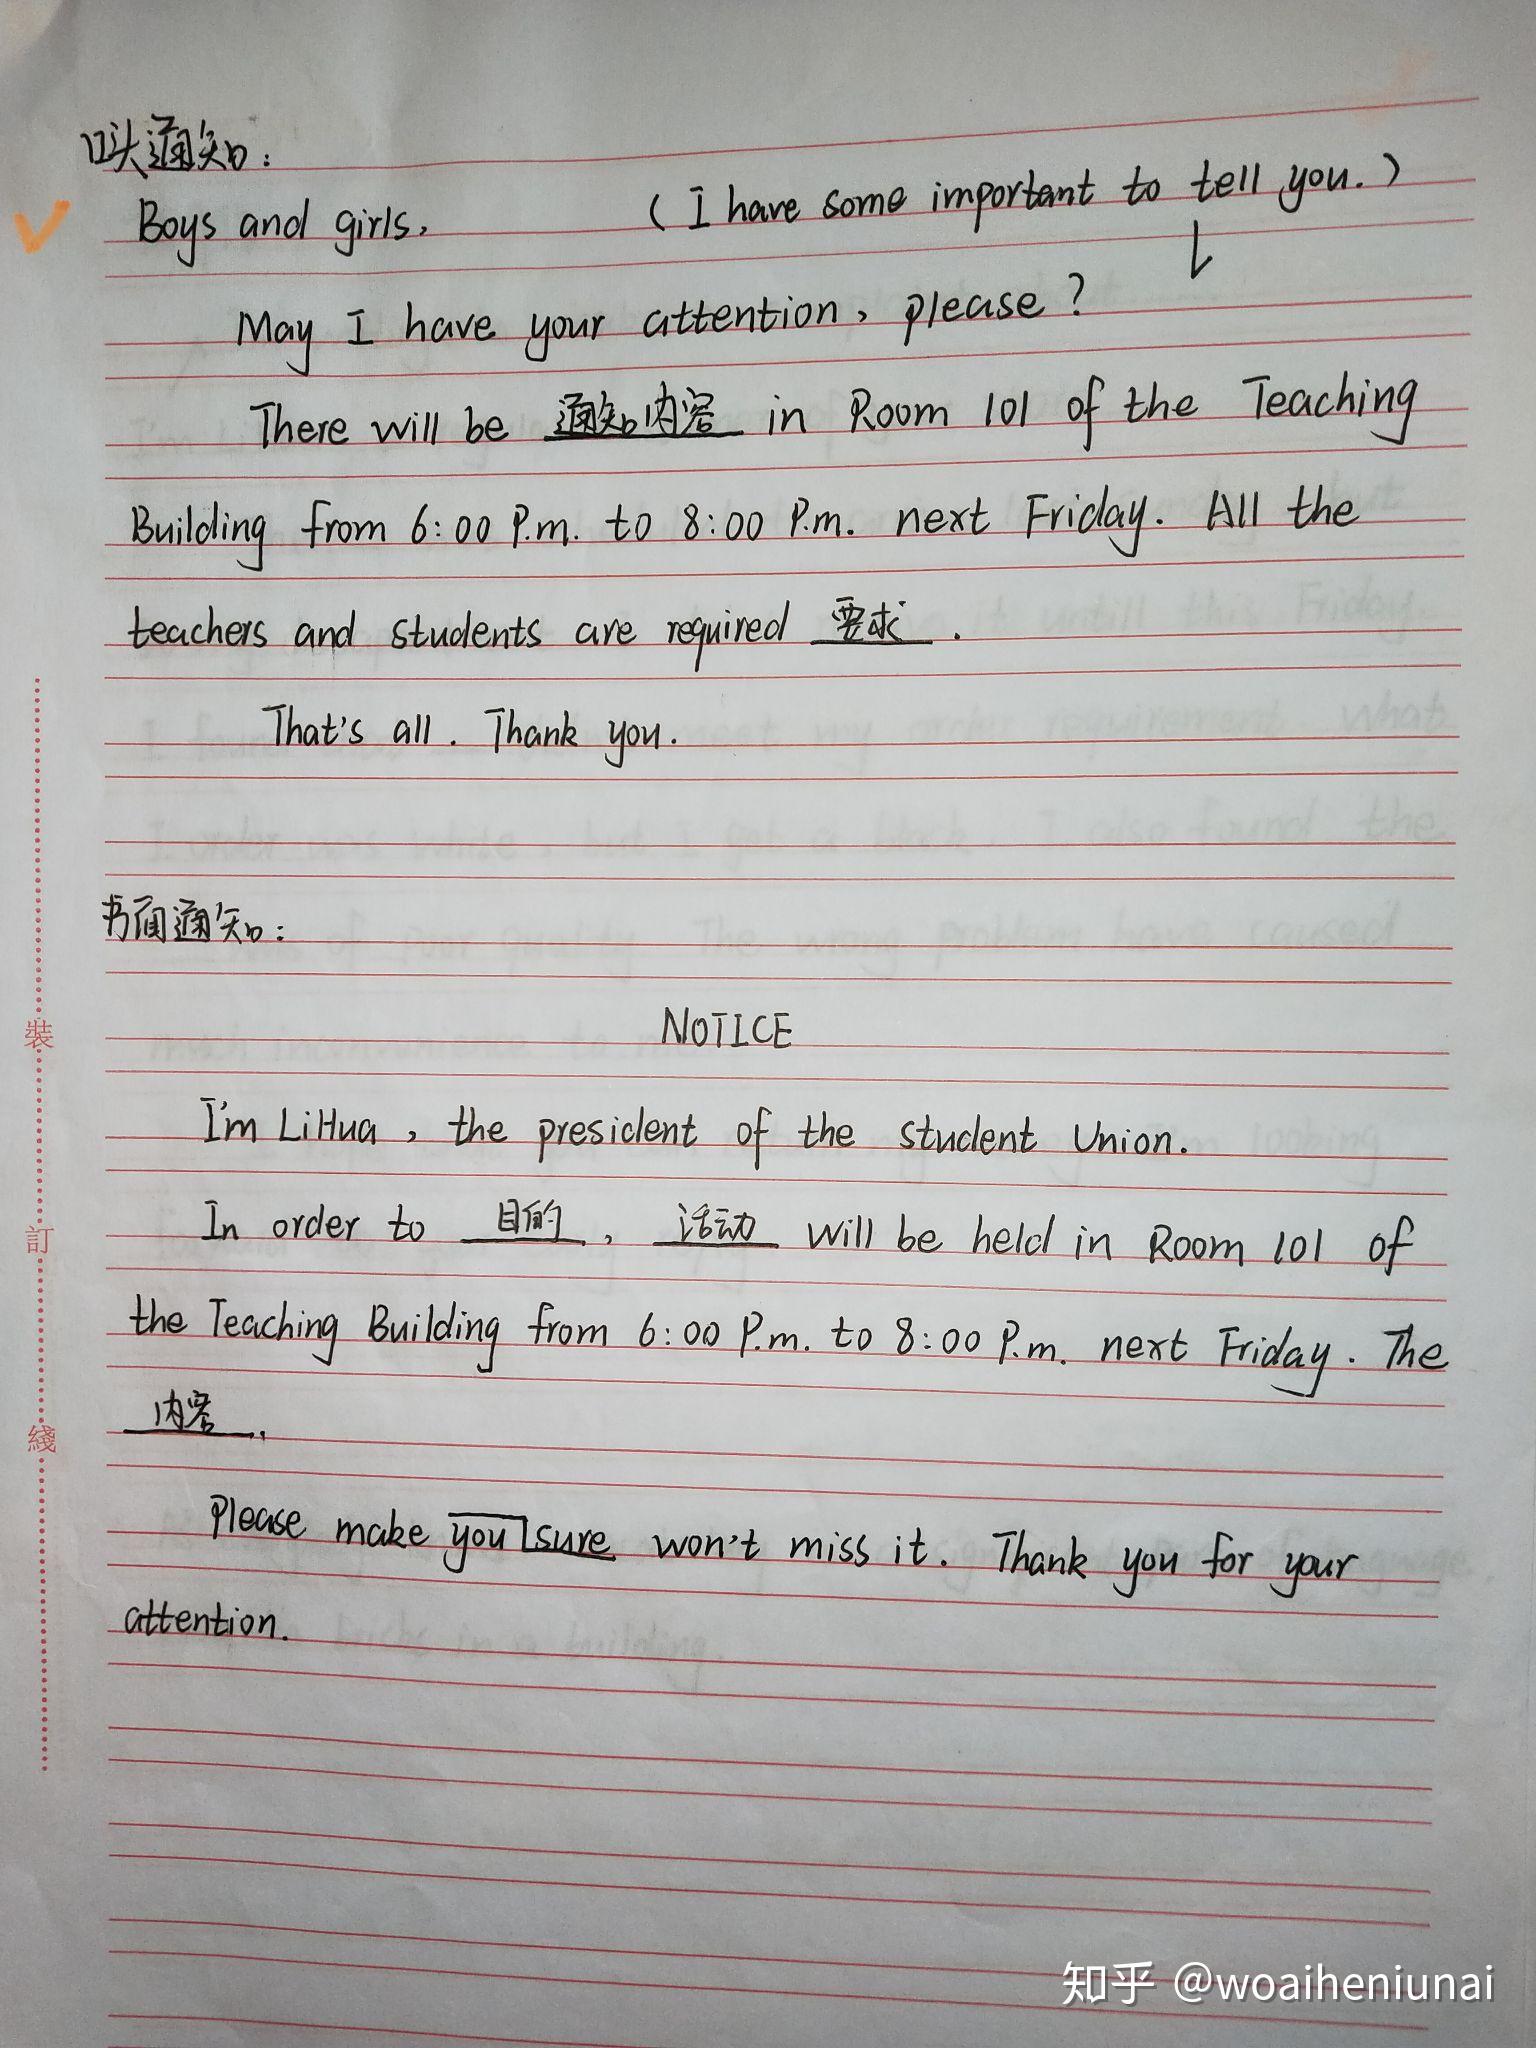 口头通知：
Boys and girls,
(I have some important to tell you.)
May I have your attention, please?
There will be 通知内容 in Room 101 of the Teaching
Building from 6:00 P.m. to 8:00 P.m. next Friday. All the
teachers and students are required 要求.
That's all. Thank you.
书面通知：
NOTICE
I'm LiHua, the president of the student Union.
In order to 目的, 活动 will be held in Room 101 of
the Teaching Building from 6:00 P.m. to 8:00 P.m. next Friday. The
内容.
Please make you sure won't miss it. Thank you for your
attention.
裝
訂
綫
知乎 @woaiheniunai